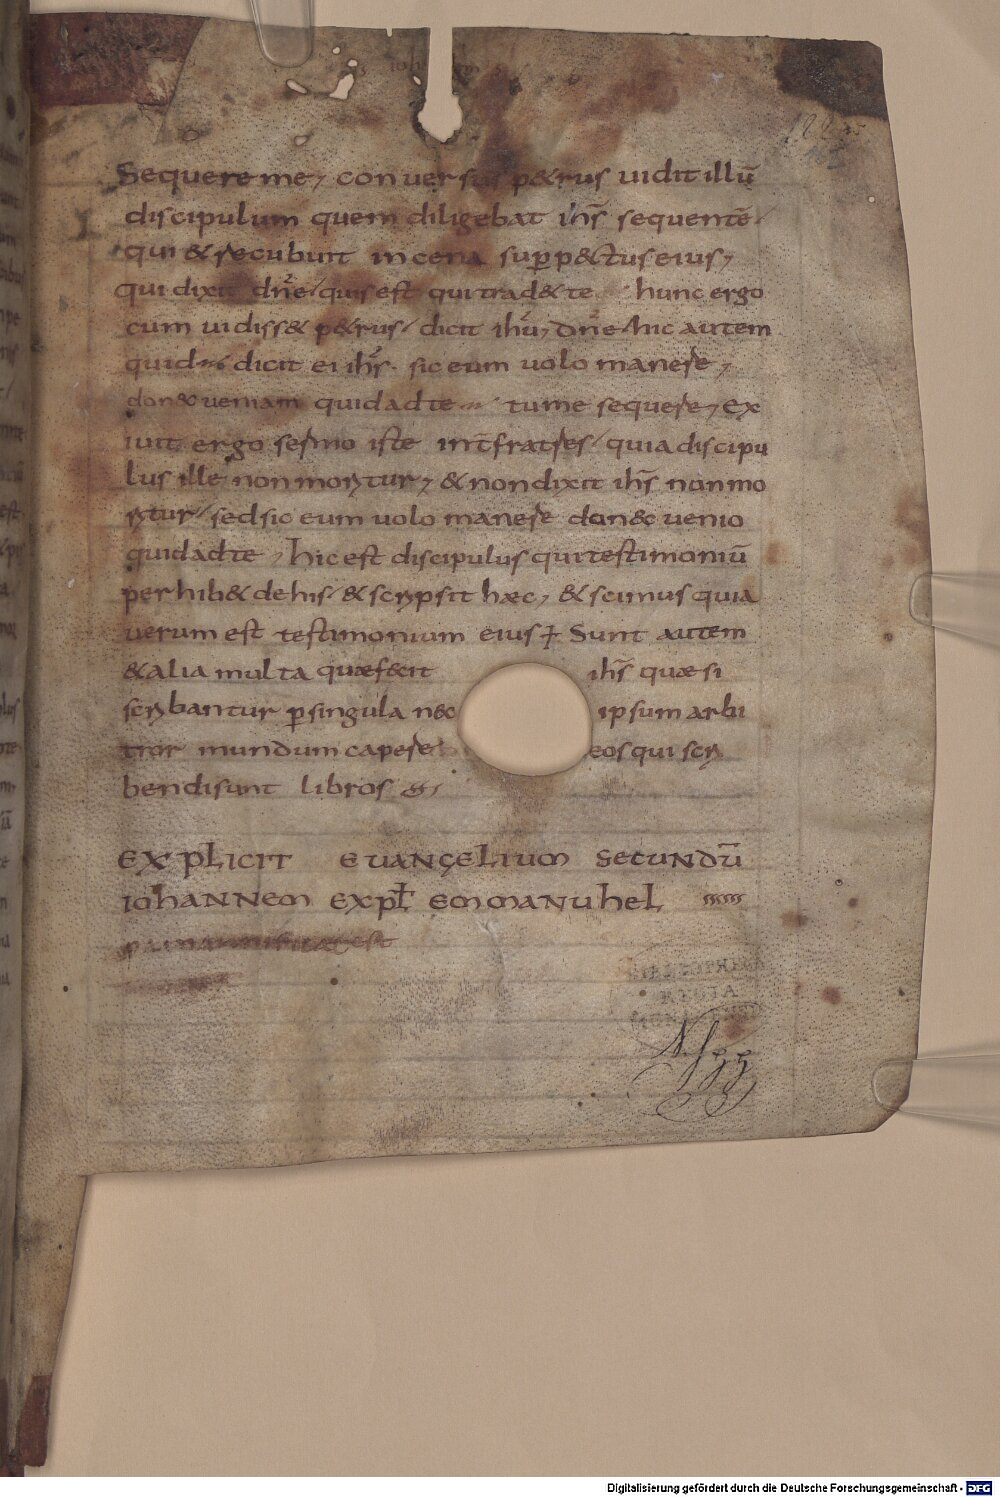 Sequere me, conuersus p&rus uidit illū
discipulum quem diligebat ih̄s sequentē
qui & recubuit in cena sup p&ctus eius,
qui dixit dn̄e quis est qui trad& te hunc ergo
cum uidiss& p&rus dicit ihū, dn̄e hic autem
quid dicit ei ih̄s. sic eum uolo manere,
don&c ueniam quid ad te tu me sequere, Ex
iuit ergo sermo iste int̄ fratres quia discipu
lus ille non moritur, & non dixit ih̄s non mo
ritur sed sic eum uolo manere don&c uenio
quid ad te, hic est discipulus qui testimoniū
perhib& de his & scripsit hæc, & scimus quia
uerum est testimonium eius Sunt autem
& alia multa quæ fecit ih̄s quæ si
scribantur p singula nec ipsum arbi
tror mundum capere eos qui scri
bendi sunt libros
EXPLICIT EUANGELIUM SECUNDŪ
IOHANNEM EXPL̄ EMMANUHEL
BIBLIOTHECA
REGIA
Digitalisierung gefördert durch die Deutsche Forschungsgemeinschaft - DFG